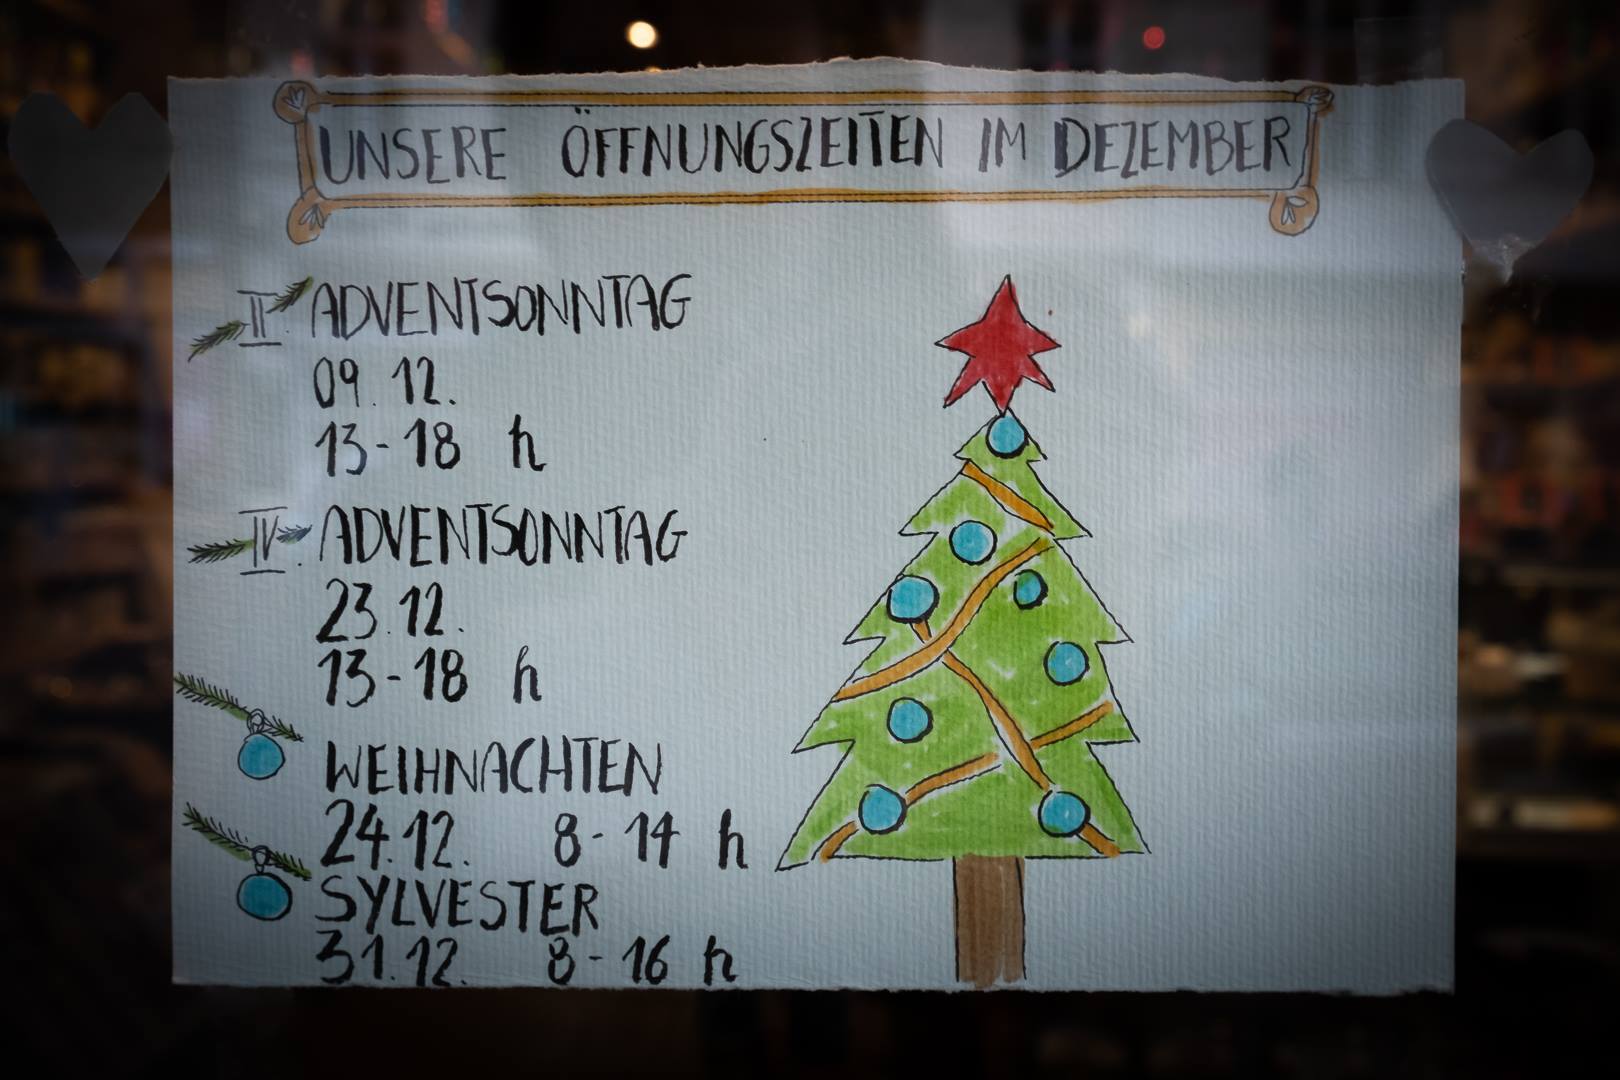 UNSERE ÖFFNUNGSZEITEN IM DEZEMBER
II. ADVENTSONNTAG
09. 12.
13-18 h
IV. ADVENTSONNTAG
23.12.
13-18 h
WEIHNACHTEN
24.12. 8-14 h
SYLVESTER
31.12. 8-16 h